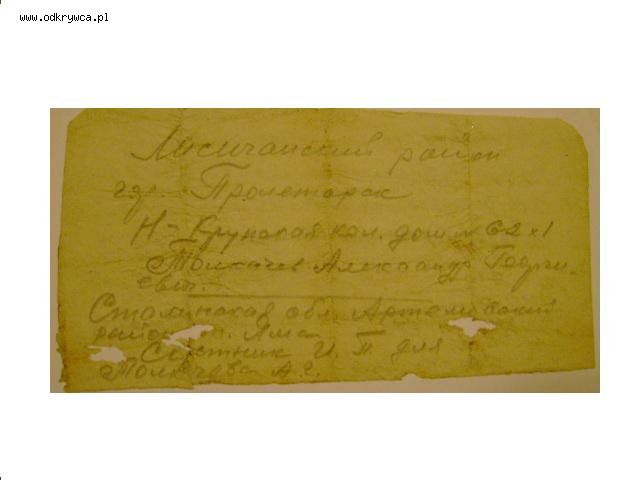 www.odkrywca.pl
Лисичанский район
гор. Пролетарск
Н- Крупская кол. дом № 62 х 1
Толкачев Александр Георги-
евич.
Сталинская обл. Артемовский
район Яма
И. П для
Толкачева А.Г.